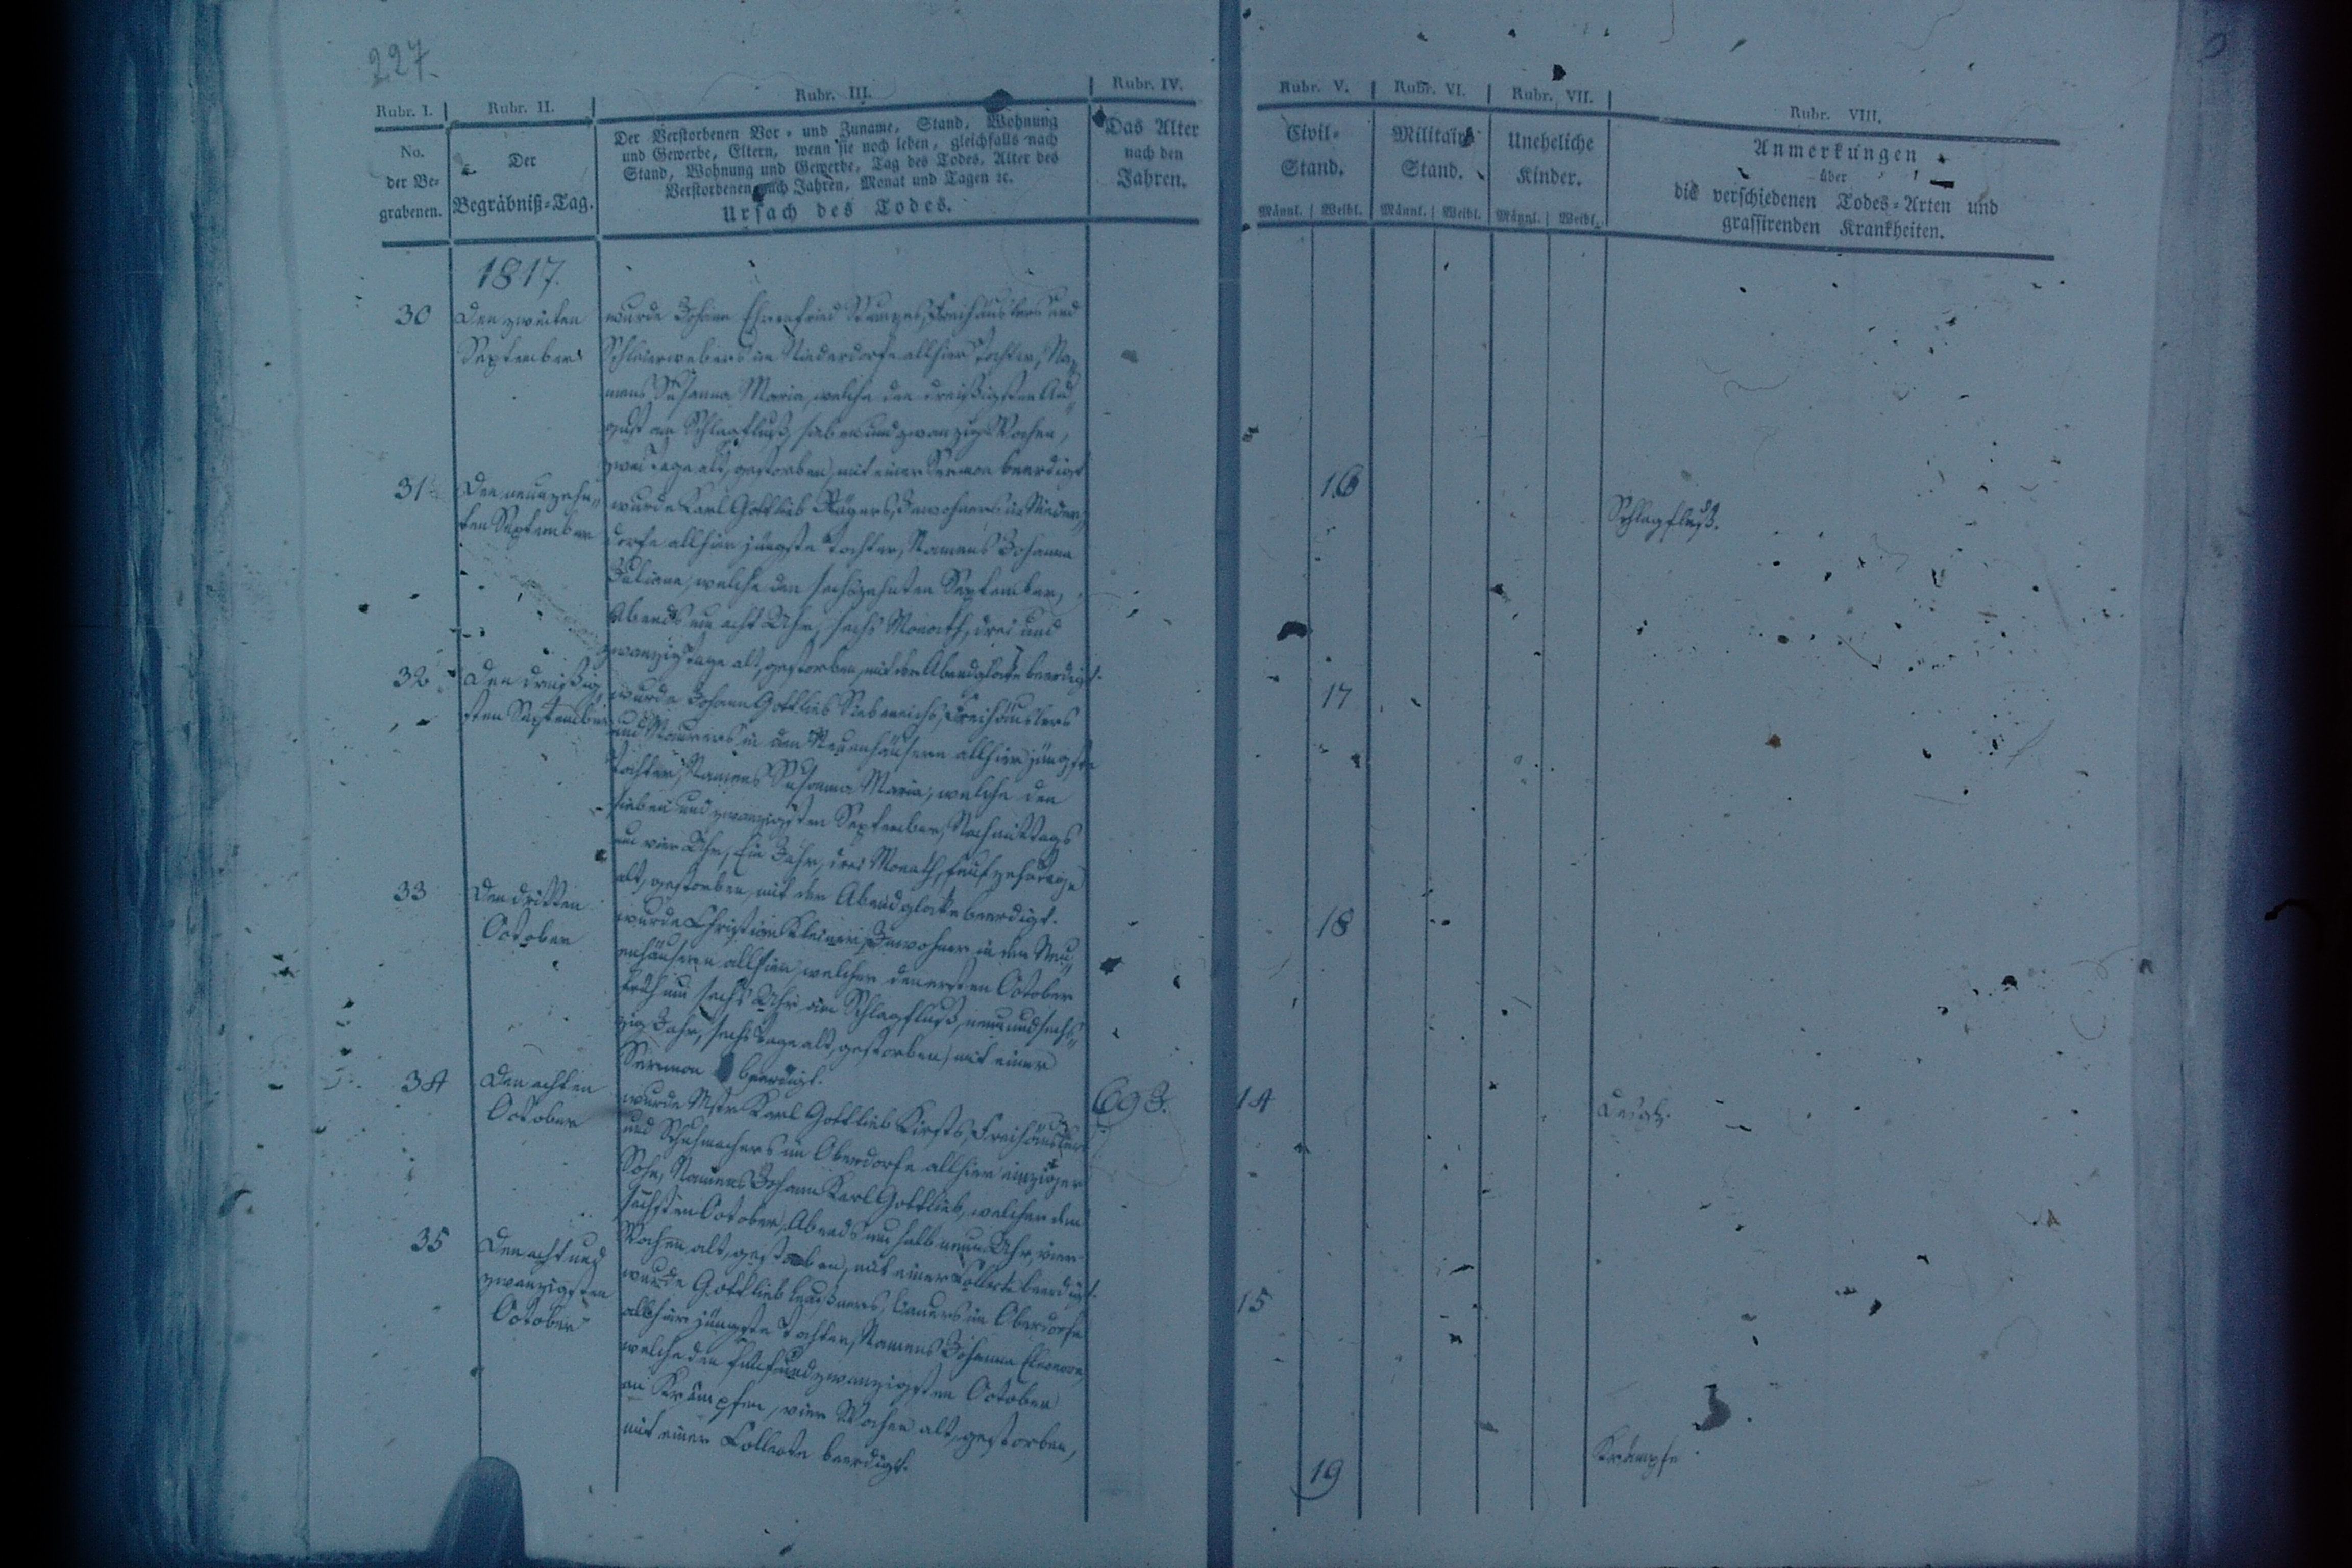 227.
Rubr. I.
Rubr. II.
Rubr. III.
Rubr. IV.
No.
der Be-
grabenen.
Der
Begräbniß-Tag.
Der Verstorbenen Vor- und Zuname, Stand, Wohnung
und Gewerbe, Eltern, wenn sie noch leben, gleichfalls nach
Stand, Wohnung und Gewerbe, Tag des Todes, Alter des
Verstorbenen nach Jahren, Monat und Tagen ꝛc.
Ursach des Todes.
Das Alter
nach den
Jahren.
1817.
30
Den zweiten
September
wurde Johann Ehrenfried Freihäuslers und
Schleierwebers im Niederdorfe allhier Tochter, Na„
mens Susanna Maria, welche den dreißigsten Au„
gust am Schlagfluß, sieben und zwanzig Wochen,
zwei Tage alt, gestorben, mit einer Sermon beerdigt
31
Den neunzehn„
ten September
wurde Karl Gottlieb Inwohners im Nieder„
dorfe allhier jüngste Tochter, Namens Johanna
Juliane, welche den sechszehnten September,
Abends um acht Uhr, sechs Monath, drei und
zwanzig Tage alt, gestorben, mit der Abendglocke beerdigt.
32
Den dreißig„
sten September
wurde Johann Gottlieb Siebeneichs, Freihäuslers
und Maurers in den Neuenhäusern allhier jüngste
Tochter, Namens Susanna Maria, welche den
sieben und zwanzigsten September, Nachmittags
um vier Uhr, Ein Jahr, drei Monath, funfzehn Tage
alt, gestorben, mit der Abendglocke beerdigt.
33
Den dritten
October
wurde Christian Inwohner in den Neu„
enhäusern allhier, welcher den ersten October
früh um sechs Uhr am Schlagfluß, neun und sechs„
zig Jahr, sechs Tage alt, gestorben, mit einer
Sermon beerdigt.
69 J.
34
Den achten
October
wurde Mstr Karl Gottlieb Freihäuslers
und Schuhmachers im Oberdorfe allhier einziger
Sohn, Namens Johann Karl Gottlieb, welcher den
sechsten October, Abends um halb neun Uhr, vier
Wochen alt, gestorben, mit einer Collecte beerdigt.
35
Den acht und
zwanzigsten
October
wurde Gottlieb Bauers im Oberdorfe
allhier jüngste Tochter, Namens Johanna Eleonore,
welche den fünf und zwanzigsten October
an Krämpfen, vier Wochen alt, gestorben,
mit einer Collecte beerdigt.
Rubr. V.
Rubr. VI.
Rubr. VII.
Rubr. VIII.
Civil-
Stand.
Militair
Stand.
Uneheliche
Kinder.
Anmerkungen
über
die verschiedenen Todes-Arten und
grassirenden Krankheiten.
Männl.
Weibl.
Männl.
Weibl.
Männl.
Weibl.
16
Schlagfluß.
17
18
14
Desgl.
15
19
Krämpfe